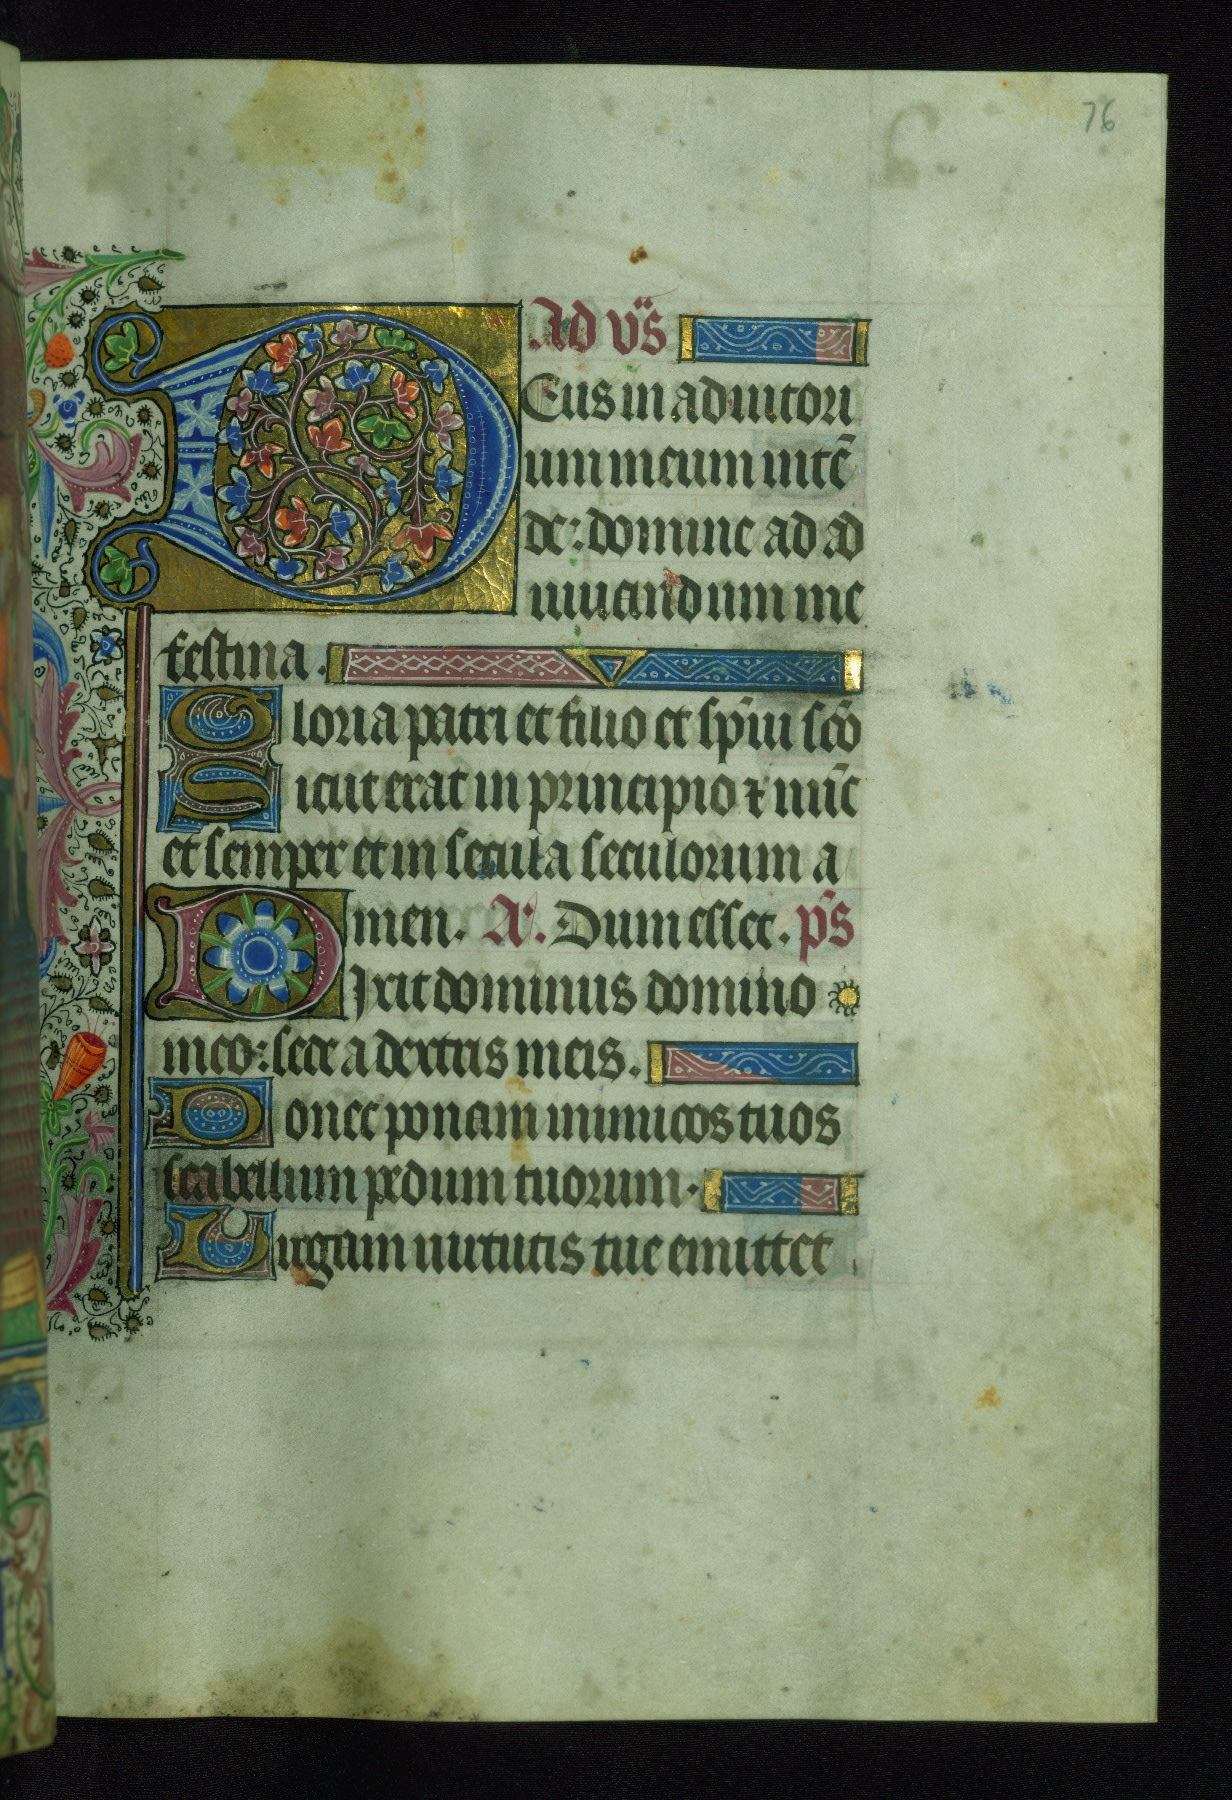 76
Ad vs̄
DEus in adiutori
um meum intē
de: domine ad ad
iuuandum me
festina.
Gloria patri et filio et sp̄iui sc̄o
Sicut erat in principio ⁊ nūc
et semper et in secula seculorum a
men. A'. Dum esset. p̄s
DIxit dominus domino
meo: sede a dextris meis.
Donec ponam inimicos tuos
scabellum pedum tuorum.
Uirgam uirtutis tue emittet